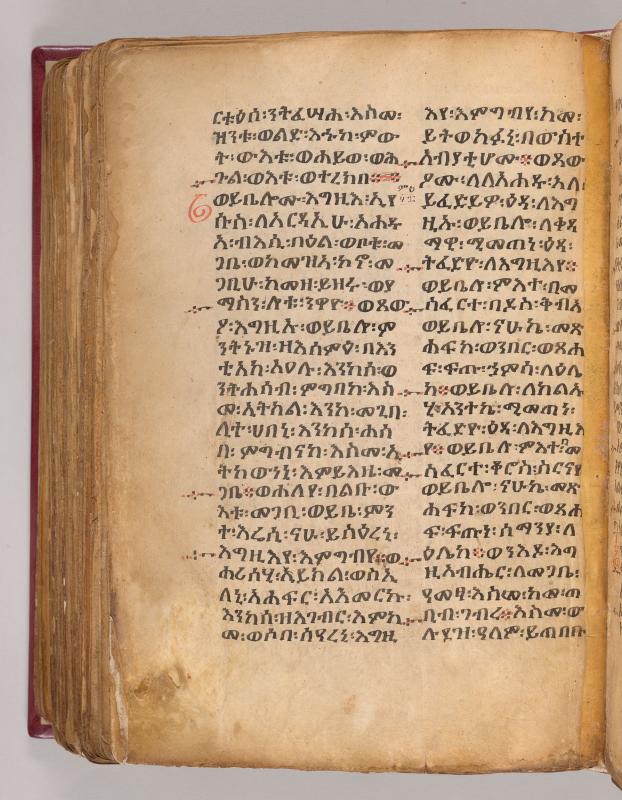 ርቱዕሰ፡ንትፈሣሕ፡እስመ፡
ዝንቱ፡ወልድ፡እኁከ፡ምው
ት፡ውእቱ፡ወሐይወ፡ወሕ
ጉል፡ወእቱ፡ወተረክበ፨
ወይቤሎሙ፡እግዚእ፡ኢየ
ሱስ፡ለአርዳኢሁ፡አሐዱ
አ፡ብእሲ፡በዕል፡ወቦቱ፡መ
ጋቤ፡ወከመዝአ፡ኮኖ፡መ
ጋቢሁ፡ከመዘ፡ይዘሩ፡ወያ
ማስን፡ሎቱ፡ንዋዮ፨ወጸው
ዖ፡እግዚኡ፡ወይቤሎ፡ም
ንትኑዝ፡ዘእሰምዕ፡በእን
ቲአከ፡አሀሉ፡እንከሰ፡ወ
ንትሐሰብ፡ምግበከ፡እስ
መ፡ኢትክል፡እንከ፡መጊበ፡
ሊተ፡ሀበኒ፡እንከሰ፡ሐሰ
በ፡ምግብናከ፡እስመ፡ኢ
ትከውነኒ፡እምይእዜ፡መ
ጋቤ፨ወሐለየ፡በልቡ፡ው
እቱ፡መጋቢ፡ወይቤ፡ምን
ተ፡እሬሲ፡ናሁ፡ይስዕረኒ፡
እግዚእየ፡እምግብየ፨ወ
ሐሪሰሂ፡ኢይክል፡ወስኢ
ለኒ፡አሐፍር፡አአመርኩ፡
እንከሰ፡ዘእገብር፡እምከ
መ፡ወሶበ፡ሰዓረኒ፡እግዚ
እየ፡እምግብየ፡ከመ፡
ይትወከፉኒ፡በውስተ
አብያቲሆሙ፨ወጸው
ዖሙ፡ለለአሐዱ፡እለ
ይፈድይዎ፡ዕዳ፡ለእግ
ዚኡ፡ወይቤሎ፡ለቀዳ
ማዊ፡ሚመጠነ፡ዕዳ፡
ትፈድዮ፡ለእግዚእየ፨
ወይቤሎ፡ምእተ፡በመ
ስፈርተ፡በዶስ፡ቅብእ
ወይቤሎ፡ናሁኬ፡መጽ
ሐፍከ፡ወንበር፡ወጸሐ
ፍ፡ፍጡነ፡ኃምሳ፡ለዕሌ
ከ፨ወይቤሎ፡ለካልኡ
ሂ፡አንተኬ፡ሚመጠነ፡
ትፈድዮ፡ዕዳ፡ለእግዚእ
የ፨ወይቤሎ፡ምእተ፡በመ
ስፈርተ፡ቆሮስ፡ስርናየ
ወይቤሎ፡ናሁኬ፡መጽ
ሐፍከ፡ወንበር፡ወጸሐ
ፍ፡ፍጡነ፡ሰማንያ፡ለ
ዕሌከ፨ወንእዶ፡እግ
ዚአብሔር፡ለመጋቤ፡
ዓመፃ፡እስመ፡ከመ፡ጠ
ቢብ፡ገብረ፨እስመ፡ው
ሉደዝ፡ዓለም፡ይጠበቡ